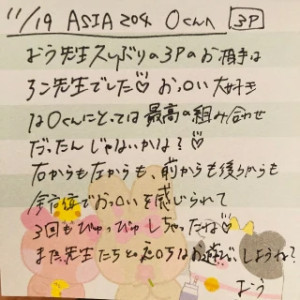 11/19 ASIA 204 Oくんへ 3P
おう先生久しぶりの3Pのお相手は
ろこ先生でした♡ おっ○い大好き
なOくんにとっては最高の組み合わせ
だったんじゃないかな?♡
右からも左からも、前からも後ろからも
でおっ○いを感じられて
3回もぴゅっぴゅしちゃったね♡
また先生たちと
しようね?
おう